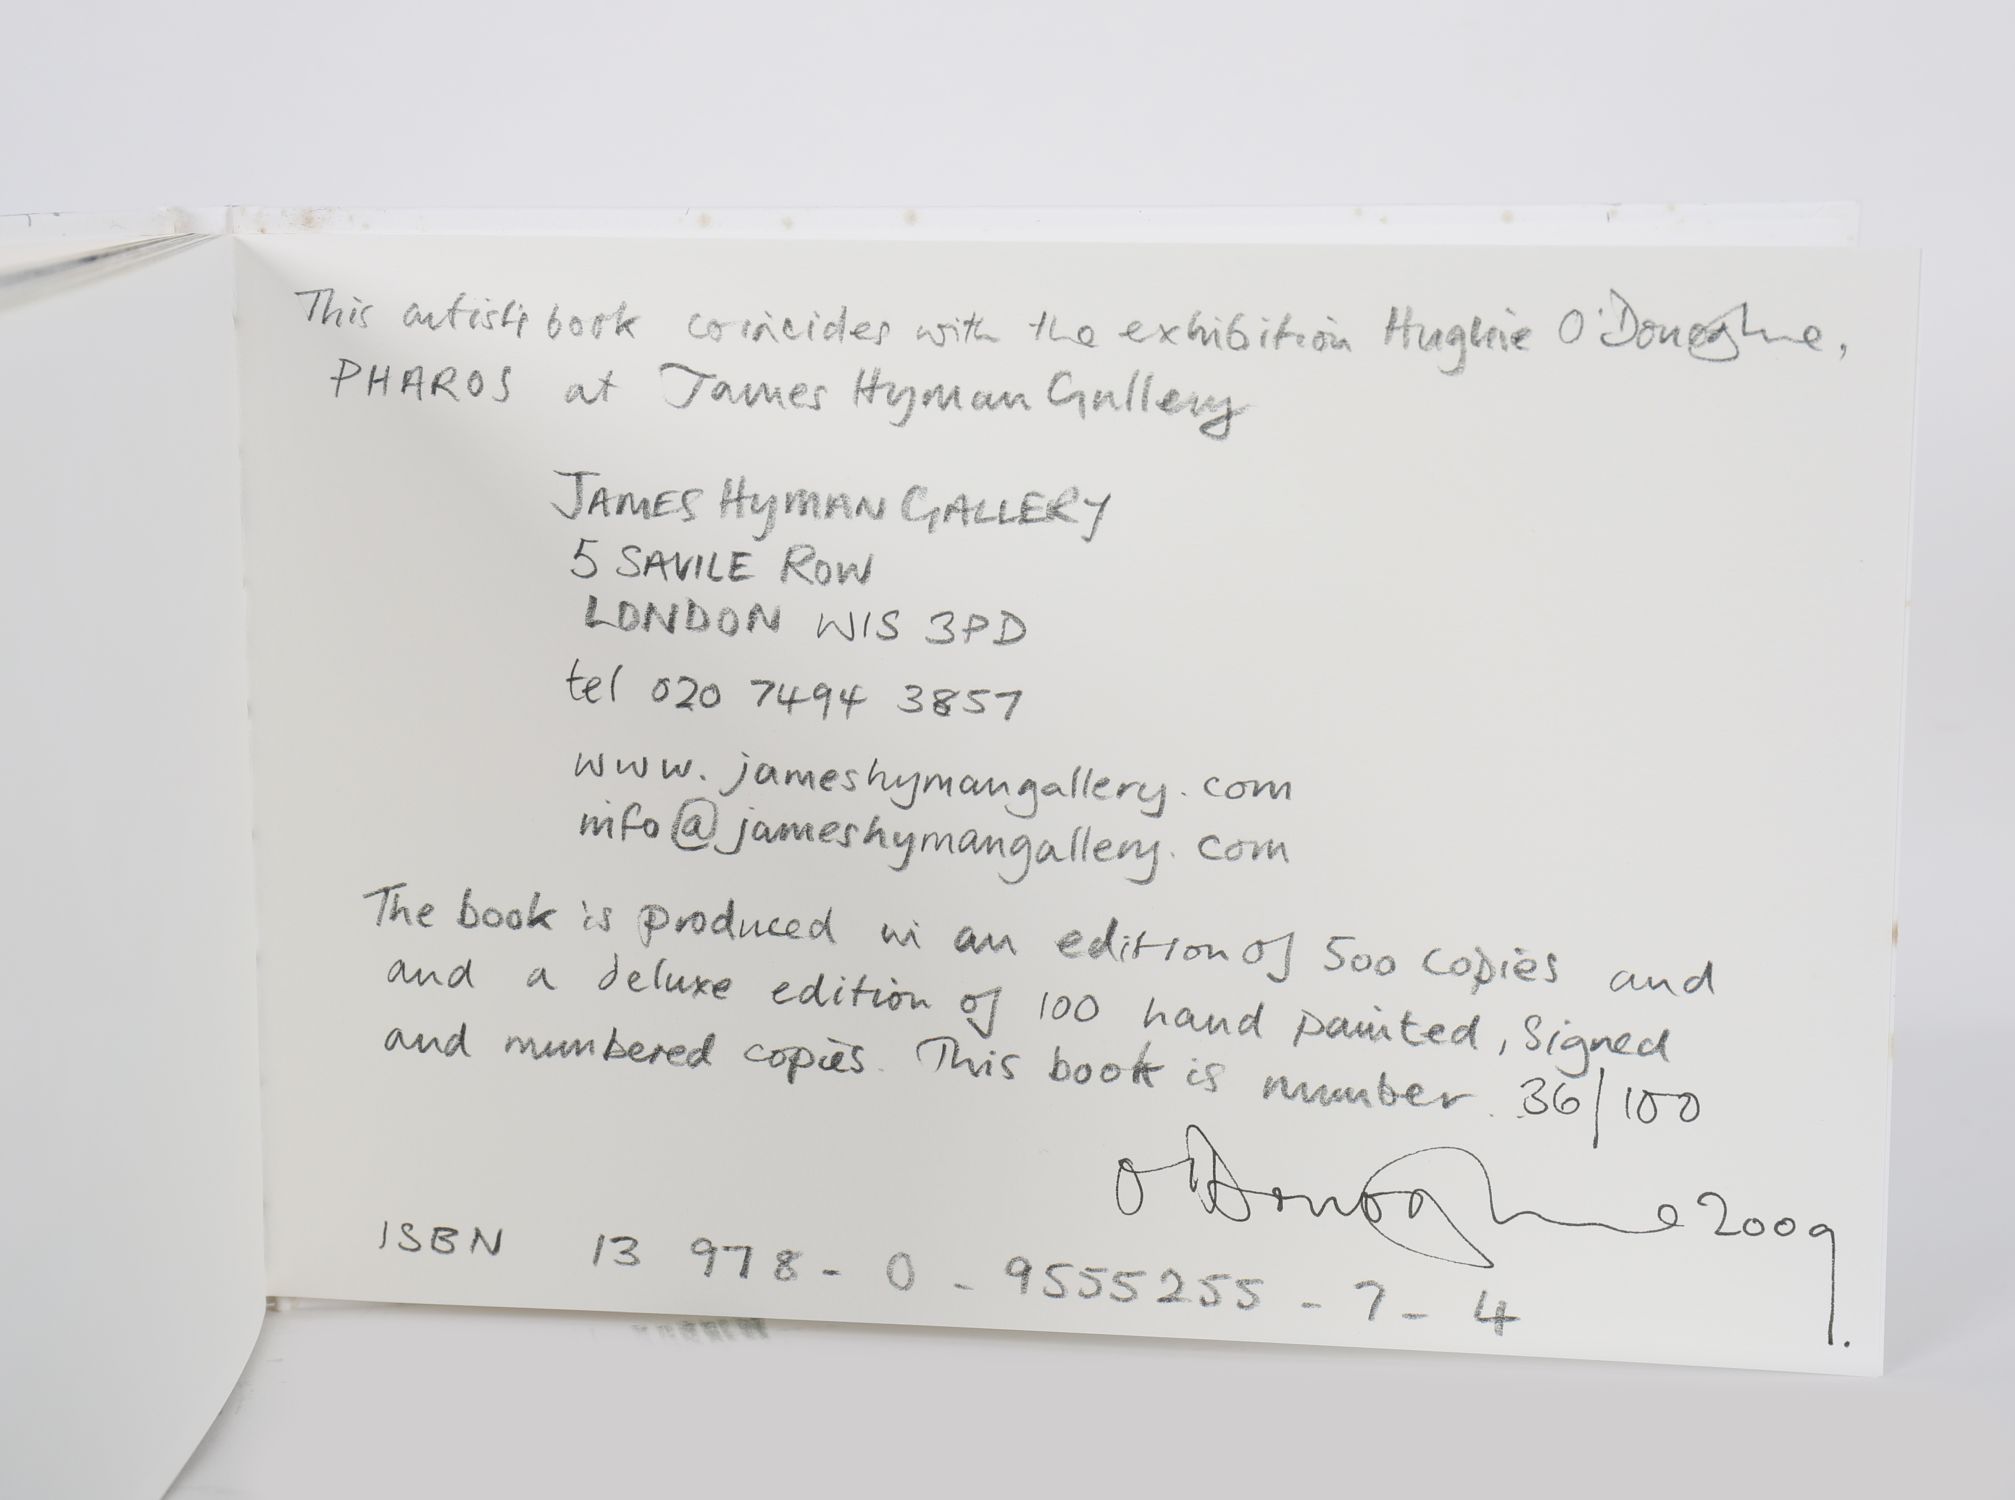 This artists book coincides with the exhibition Hughie O'Donoghue,
PHAROS at James Hyman Gallery
JAMES HYMAN GALLERY
5 SAVILE ROW
LONDON W1S 3PD
tel 020 7494 3857
www.jameshymangallery.com
info@jameshymangallery.com
The book is produced in an edition of 500 copies and
and a deluxe edition of 100 hand painted, signed
and numbered copies. This book is number. 36/100
O'Donoghue 2009.
ISBN 13 978-0-9555255-7-4